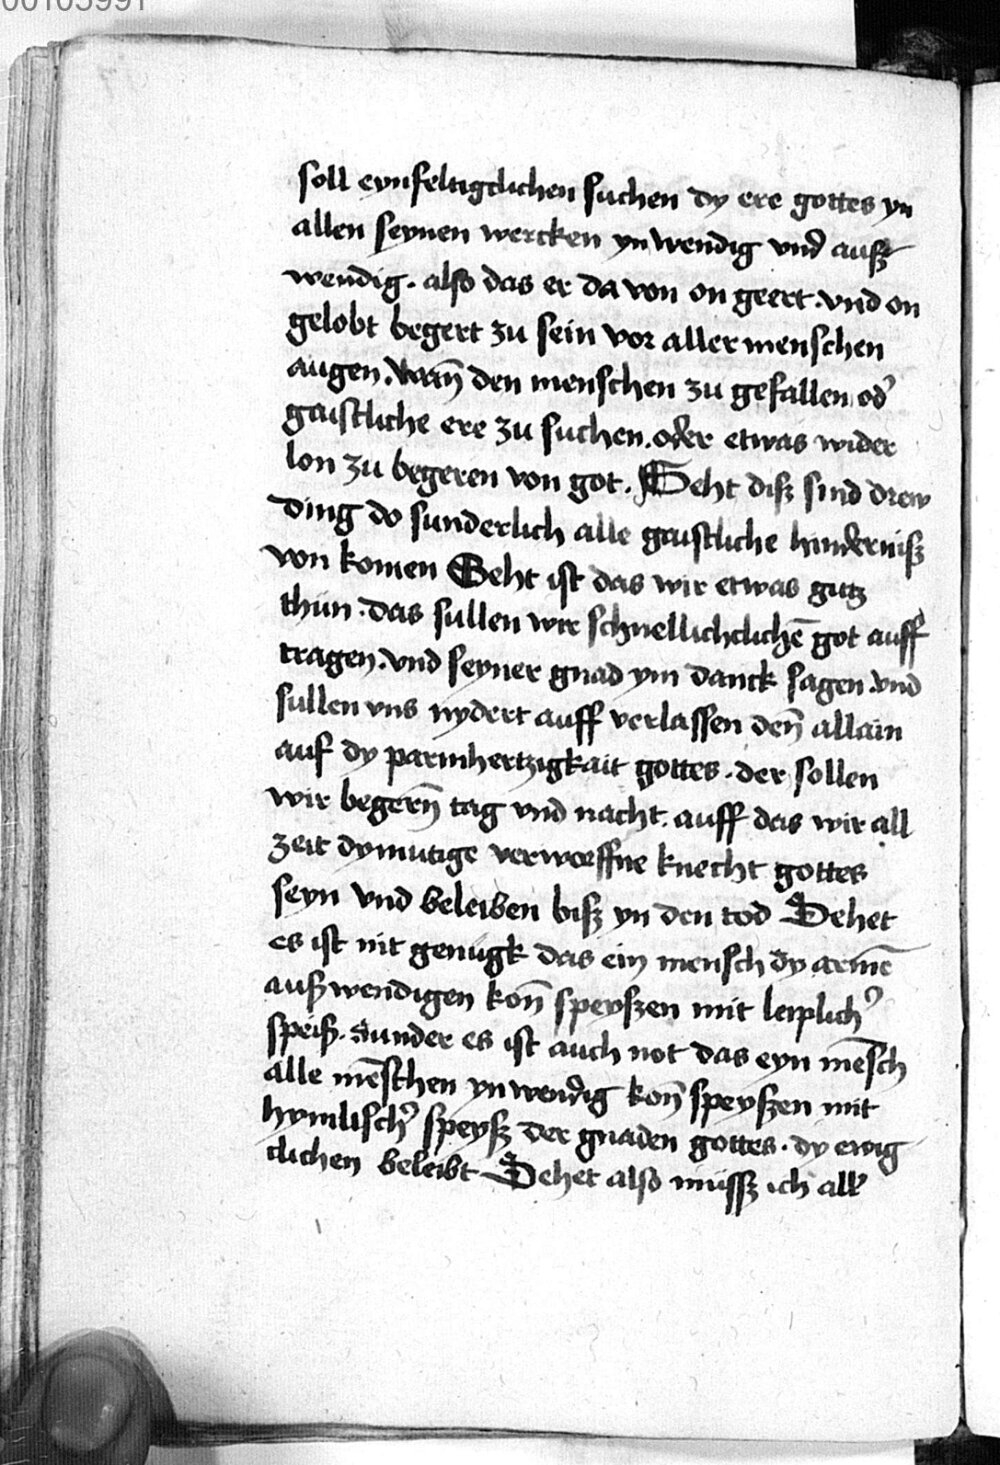 00103991
soll eynfeltigclichen suchen dy ere gottes yn
allen seynen wercken ynwendig vnd ausz
wendig. also das er da von on geert. vnd on
gelobt begert zu sein vor aller menschen
augen. wan̄ den menschen zu gefallen od'
gaistliche ere zu suchen. oder etwas wider
lon zu begeren von got. Seht disz sind drew
ding do sunderlich alle gaistliche hindernisz
von komen Seht ist das wir etwas gutz
thun. das sullen wir schnellichclichē got auff
tragen. vnd seyner gnad ym danck sagen. vnd
sullen vns nydert auff verlassen den̄ allain
auf dy parmhertzigkait gottes. der sollen
wir begern̄ tag vnd nacht. auff das wir all
zeit dymutige verworffne knecht gottes
seyn vnd beleiben bisz yn den tod Sehet
es ist nit genugk das ein mensch dy armē
auszwendigen kon̄ speyszen mit leiplich'
speisz. sunder es ist auch not das eyn mēsch
alle mēschen ynwendig kon̄ speyszen mit
hymlisch' speysz der gnaden gottes. dy ewig
clichen beleibt Sehet also mussz ich all'